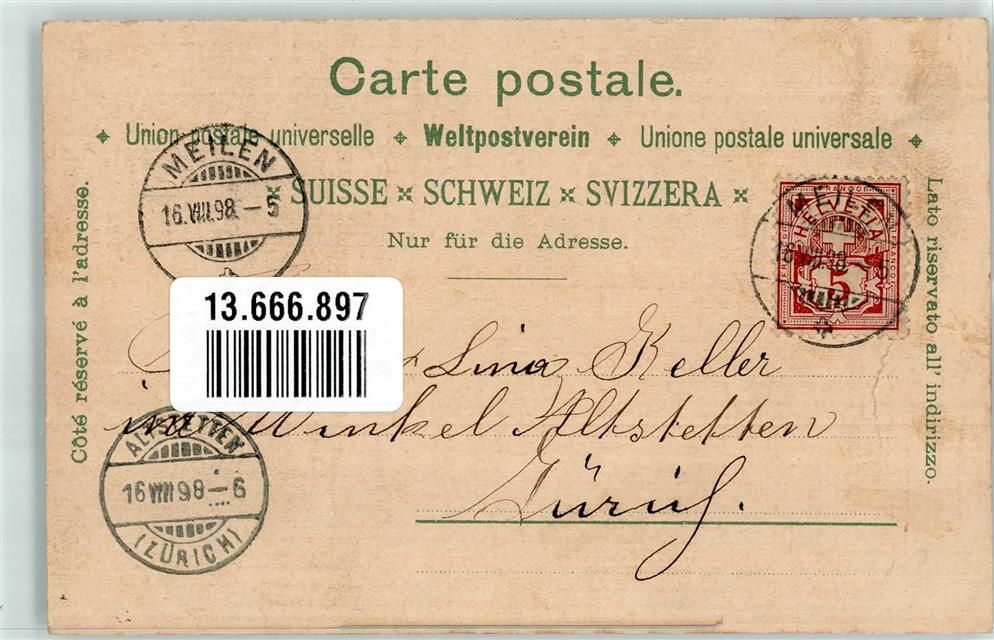 Carte postale.
Union postale universelle Weltpostverein Unione postale universale
SUISSE × SCHWEIZ × SVIZZERA ×
Nur für die Adresse.
Côté réservé à l'adresse.
Lato riservato all' indirizzo.
MEILEN
16.VIII.98.-5
MEILEN
16.VIII.98.-5
FRANCO
HELVETIA
5
13.666.897
Lina Keller
im Winkel Altstetten
Zürich.
ALTSTETTEN
16 VIII 98-6
(ZÜRICH)